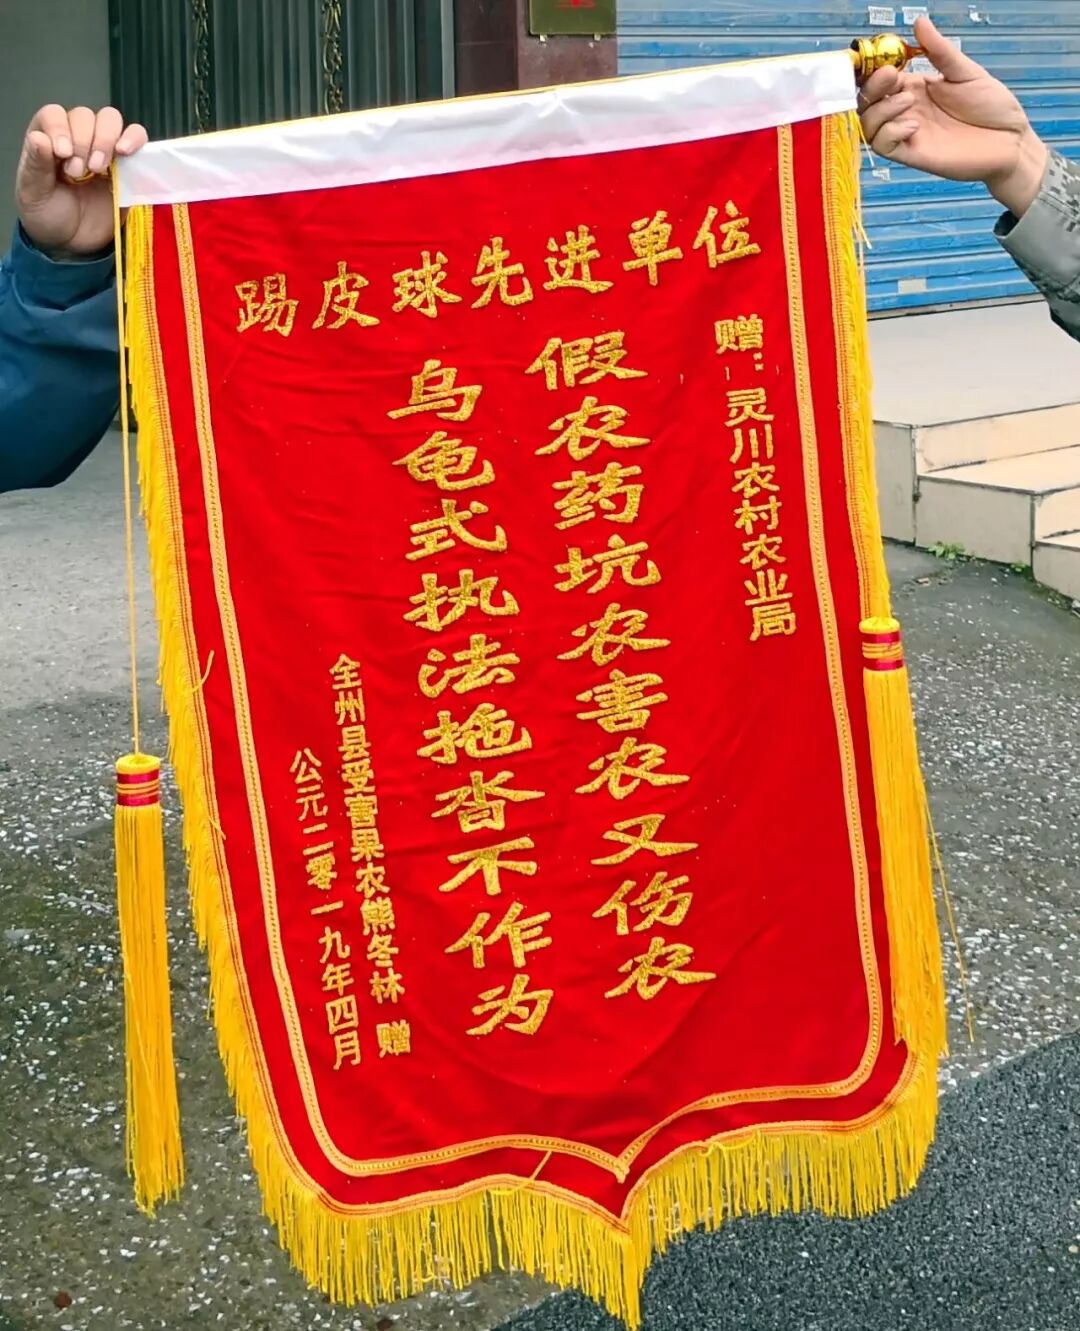 踢皮球先进单位
赠：灵川农村农业局
假农药坑农害农又伤农
乌龟式执法拖沓不作为
全州县受害果农熊冬林 赠
公元二零一九年四月